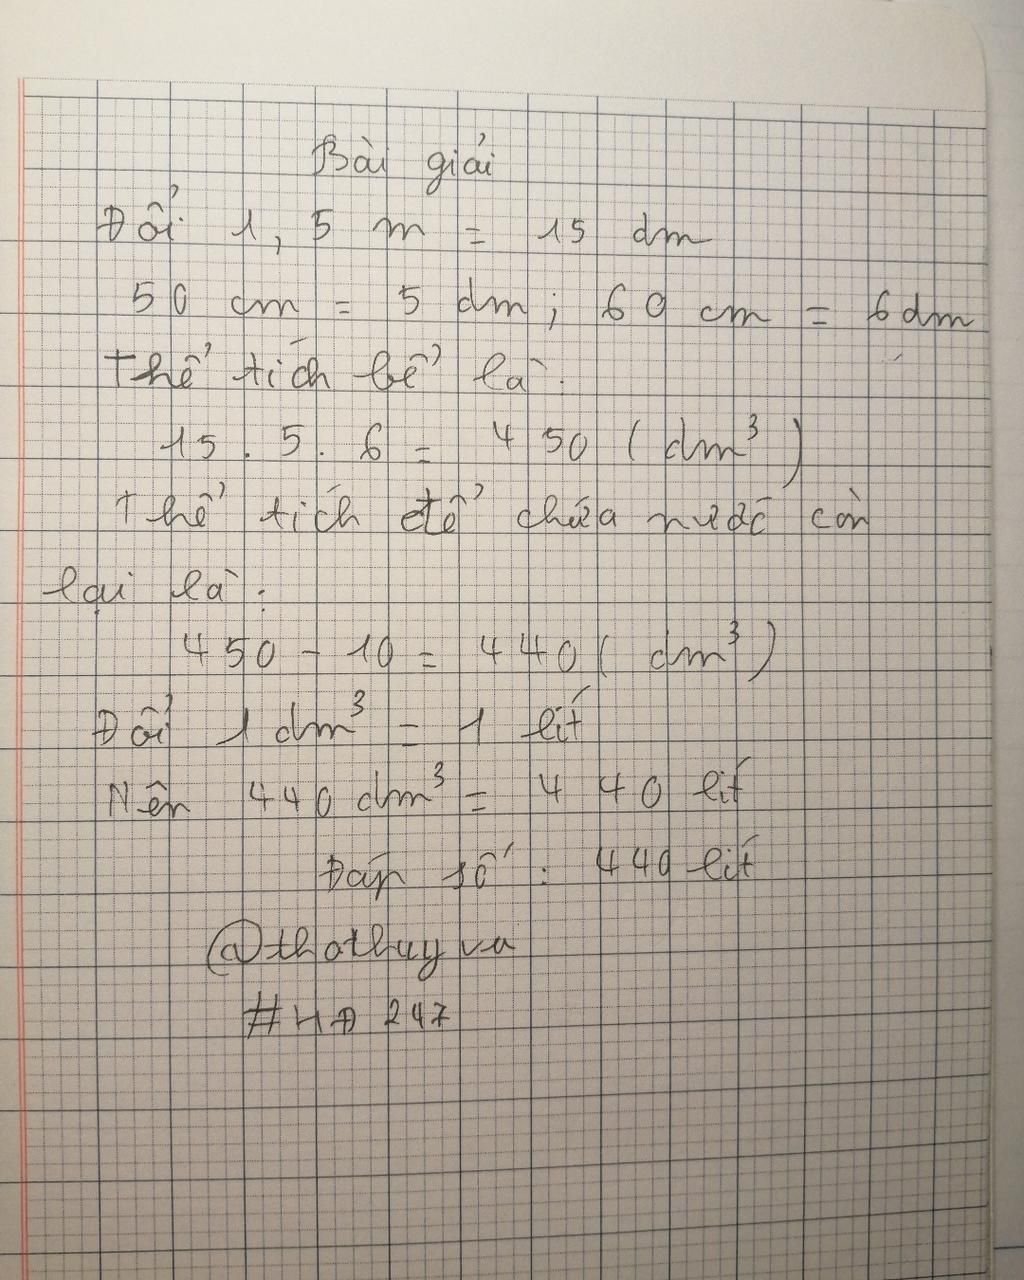 Bài giải
Đổi 1,5 m = 15 dm
50 cm = 5 dm; 60 cm = 6 dm
Thể tích bể là:
15 . 5 . 6 = 450 (dm³)
Thể tích để chứa nước còn
lại là:
450 - 10 = 440 (dm³)
Đổi 1 dm³ = 1 lít
Nên 440 dm³ = 440 lít
Đáp số : 440 lít
@thathuyva
#HĐ 247